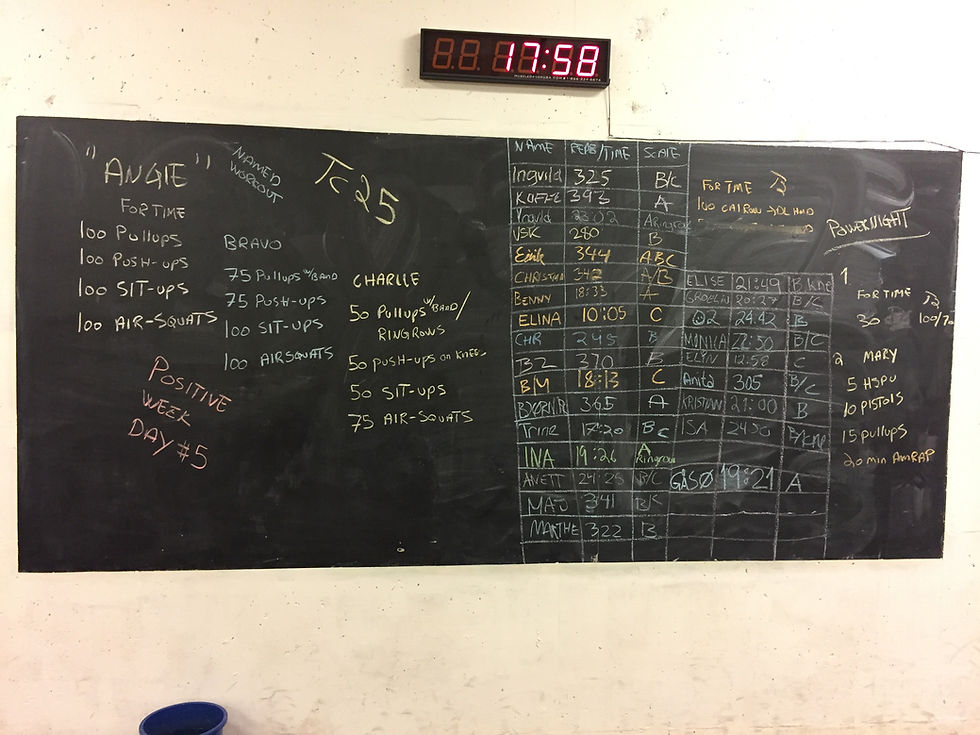 17:58
"ANGIE"
FOR TIME
100 PULLUPS
100 PUSH-UPS
100 SIT-UPS
100 AIR-SQUATS
NAMED
WORKOUT
TC 25
BRAVO
75 PULLUPS W/BAND
75 PUSH-UPS
100 SIT-UPS
100 AIRSQUATS
CHARLIE
50 PULLUPS W/BAND/
RINGROWS
50 PUSH-UPS ON KNEE
50 SIT-UPS
75 AIR-SQUATS
POSITIVE
WEEK
DAY #5
NAME REPS/TIME SCALE
Ingvild 325 B/C
KOFFE 393 A
Yngvild 23:02
280 B
Eirik 344 ABC
CHRISTIAN 342 A/B
BENNY 18:33 A
ELINA 10:05 C
CHR 245 B
BZ 370 B
B/M 18:13 C
365 A
Trine 17:20 BC
INA 19:26 A Ringrows
ANETT 24:25 B/C
MAJ 341 B/K
MARTHE 322 B
ELISE 21:49 B KNE
20:27 B/C
24:42 B
MONICA 22:50 B/C
ELYN 12:58 C
Anita 305 B/C
KRISTIAN 21:00 B
ISA 24:50 B/KNE
GASØ 19:21 A
FOR TIME
100 CAL ROW
POWERNIGHT
1
FOR TIME
30
100/70
2 MARY
5 HSPU
10 PISTOLS
15 PULLUPS
20 MIN AMRAP